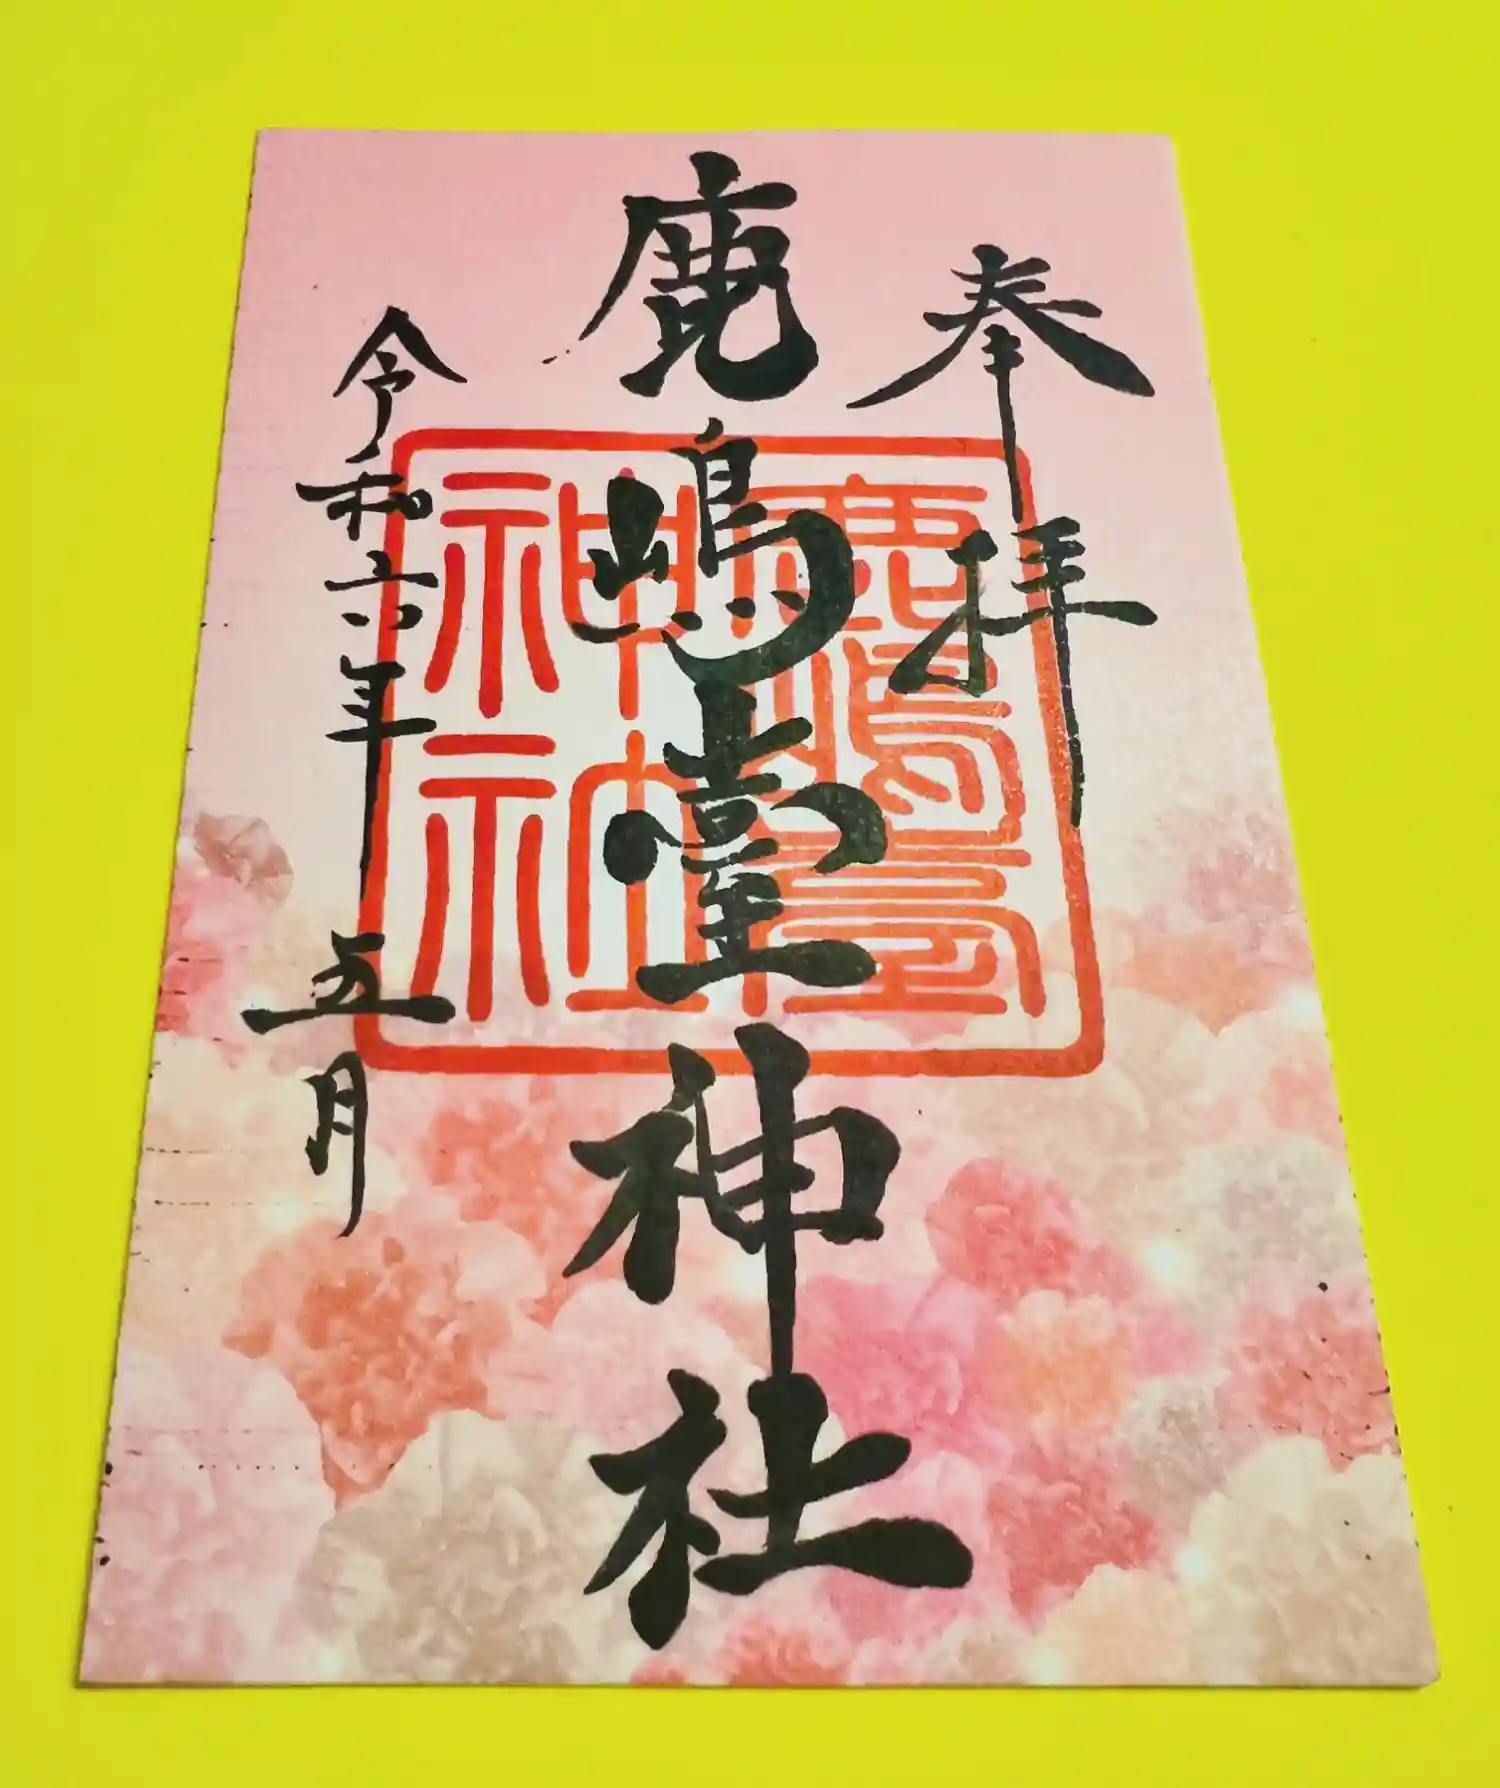 奉拝
鹿嶋臺神社
令和六年 五月
鹿嶋臺
神社